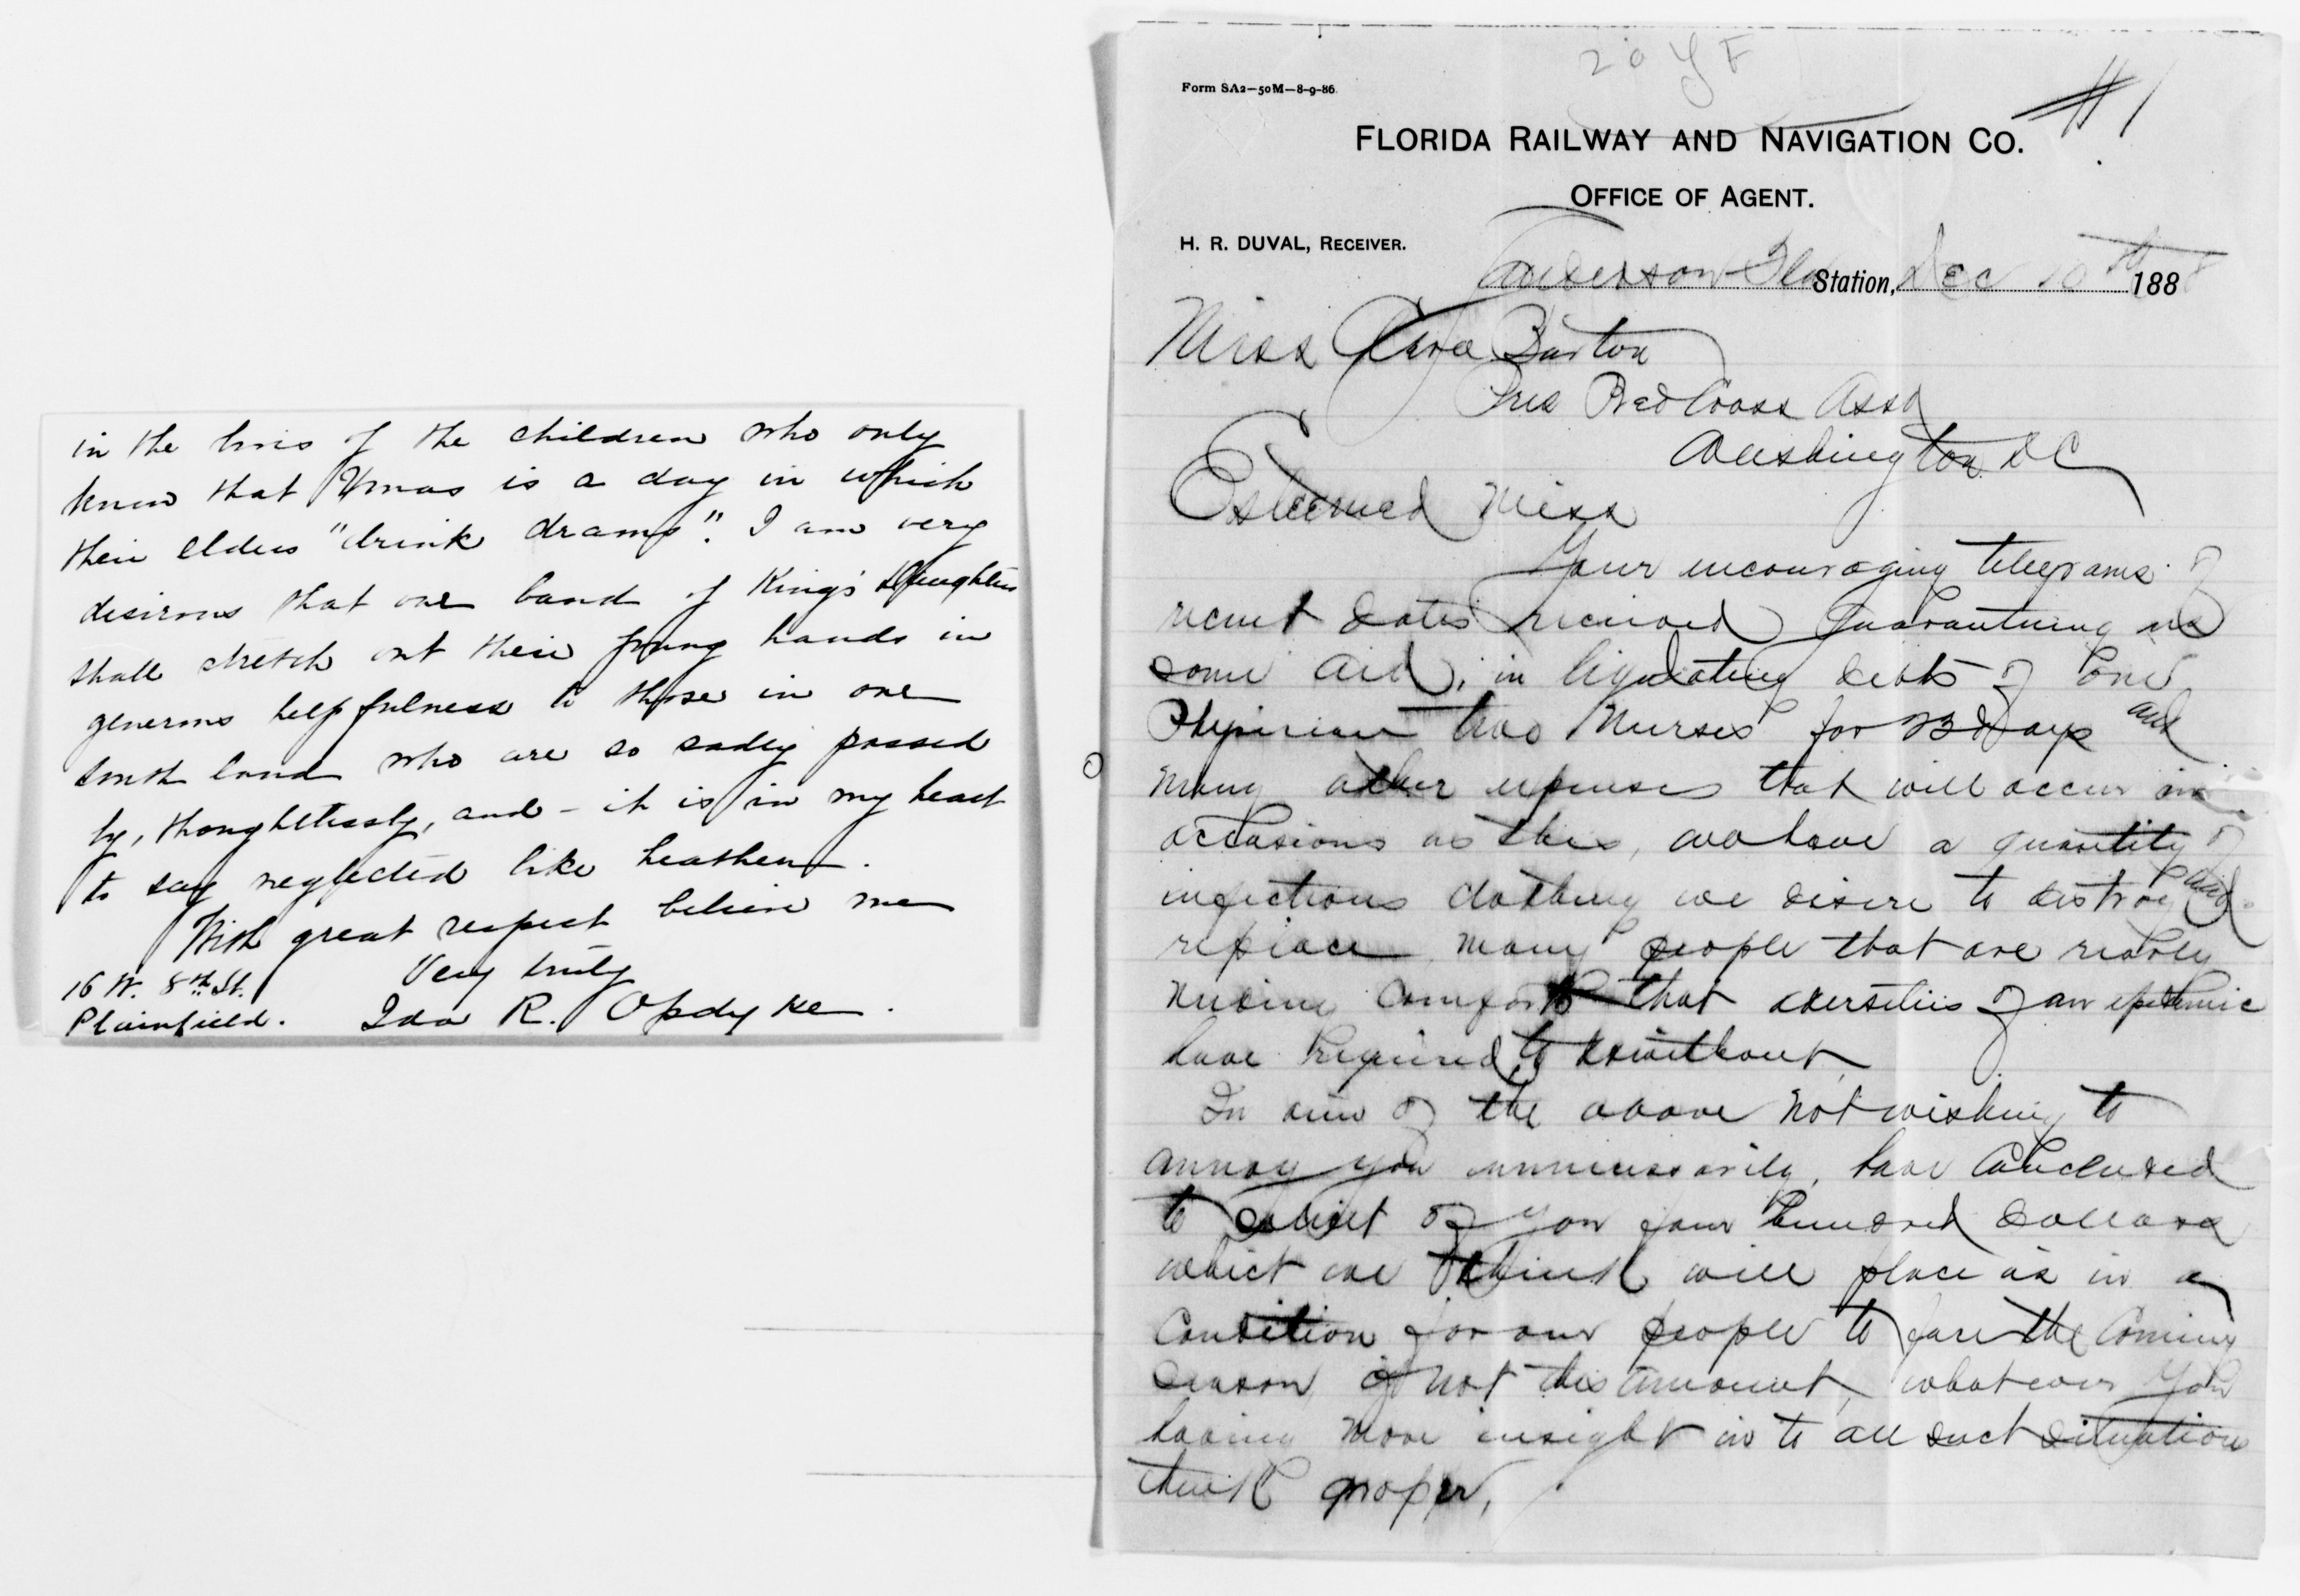 in the lives of the children who only
know that Xmas is a day in which
their elders "drink drams". I am very
desirous that one band of King's Daughters
shall stretch out their young hands in
generous helpfulness to those in our
South land who are so sadly passed
by, thoughtlessly, and - it is in my heart
to say neglected like heathen.
With great respect believe me
Very truly
16 W. 8th St.
Plainfield.
Ida R. Opdyke.
20 Y F
#1
Form SA2—50M—8-9-86.
FLORIDA RAILWAY AND NAVIGATION CO.
OFFICE OF AGENT.
H. R. DUVAL, RECEIVER.
Sanderson Fla Station, Dec 10th 1888
Miss Clara Barton
Pres Red Cross Assn
Washington DC
Esteemed Miss
Your encouraging telegrams of
recent dates received Guaranteeing us
some aid, in liquidating debts of one
Physician two Nurses for 23 Days and
many other expenses that will occur in
occasions as this, we have a quantity of
infectious clothing we desire to destroy and
replace many people that are really
needing comforts that adversities of an epidemic
have required to do without
In view of the above not wishing to
annoy you unnecessarily, have concluded
to solicit of you four hundred dollars
which we think will place us in a
condition for our people to face the coming
season, if not this amount, whatever you
having more insight in to all such situation
think proper,